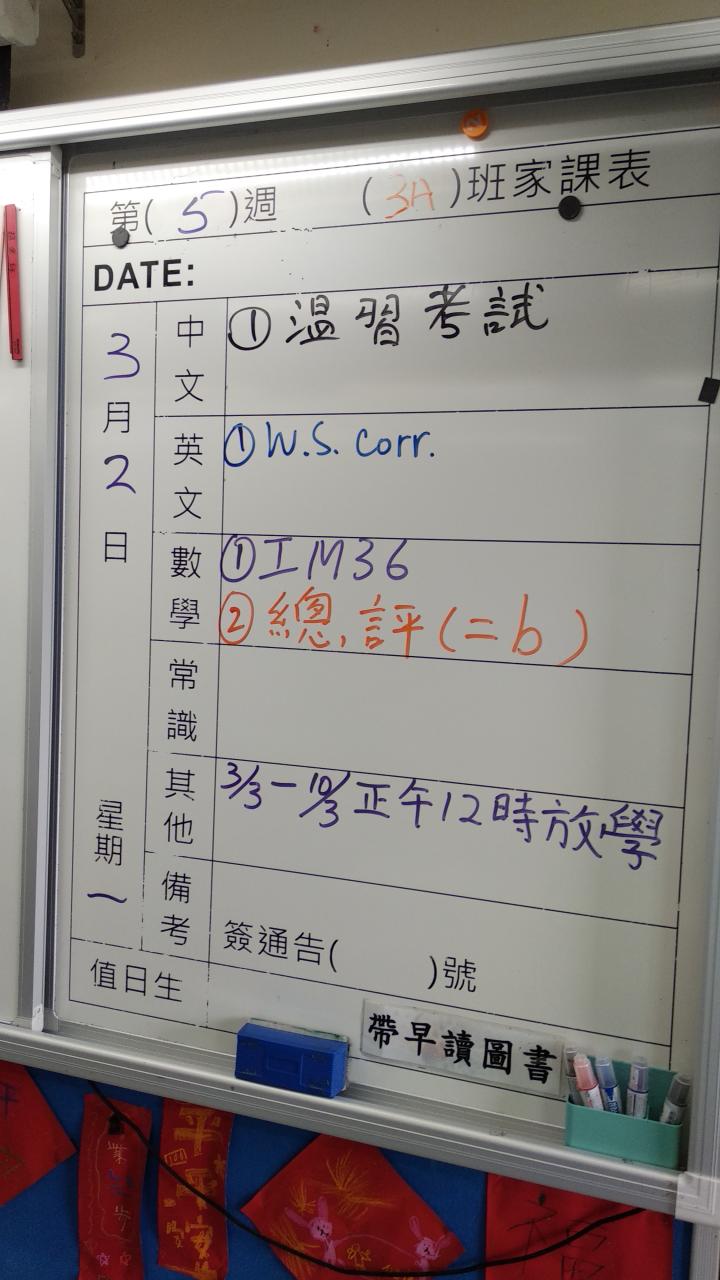 第( 5 )週 ( 3A )班家課表
DATE:
3月2日
星期一
中文
①温習考試
英文
①W.S. Corr.
數學
①工M36
②總評(=b)
常識
其他
3/3－10/3正午12時放學
備考
簽通告( )號
值日生
帶早讀圖書
平安
福